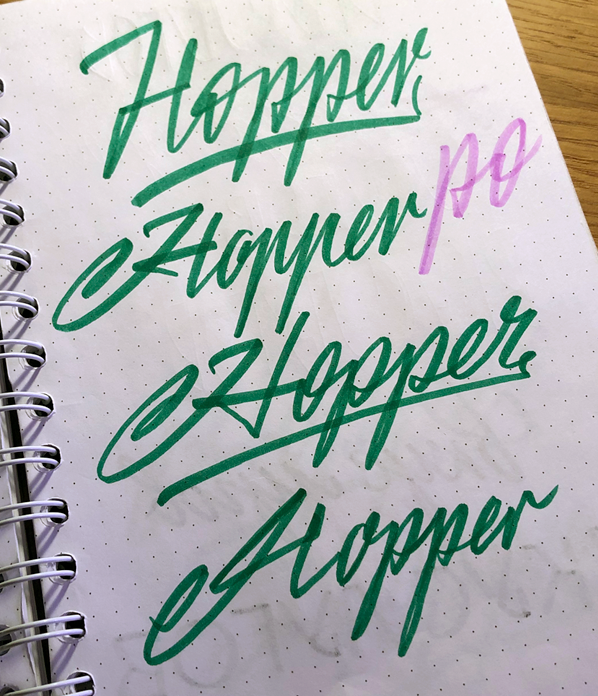 Hopper
Hopper po
Hopper
Hopper